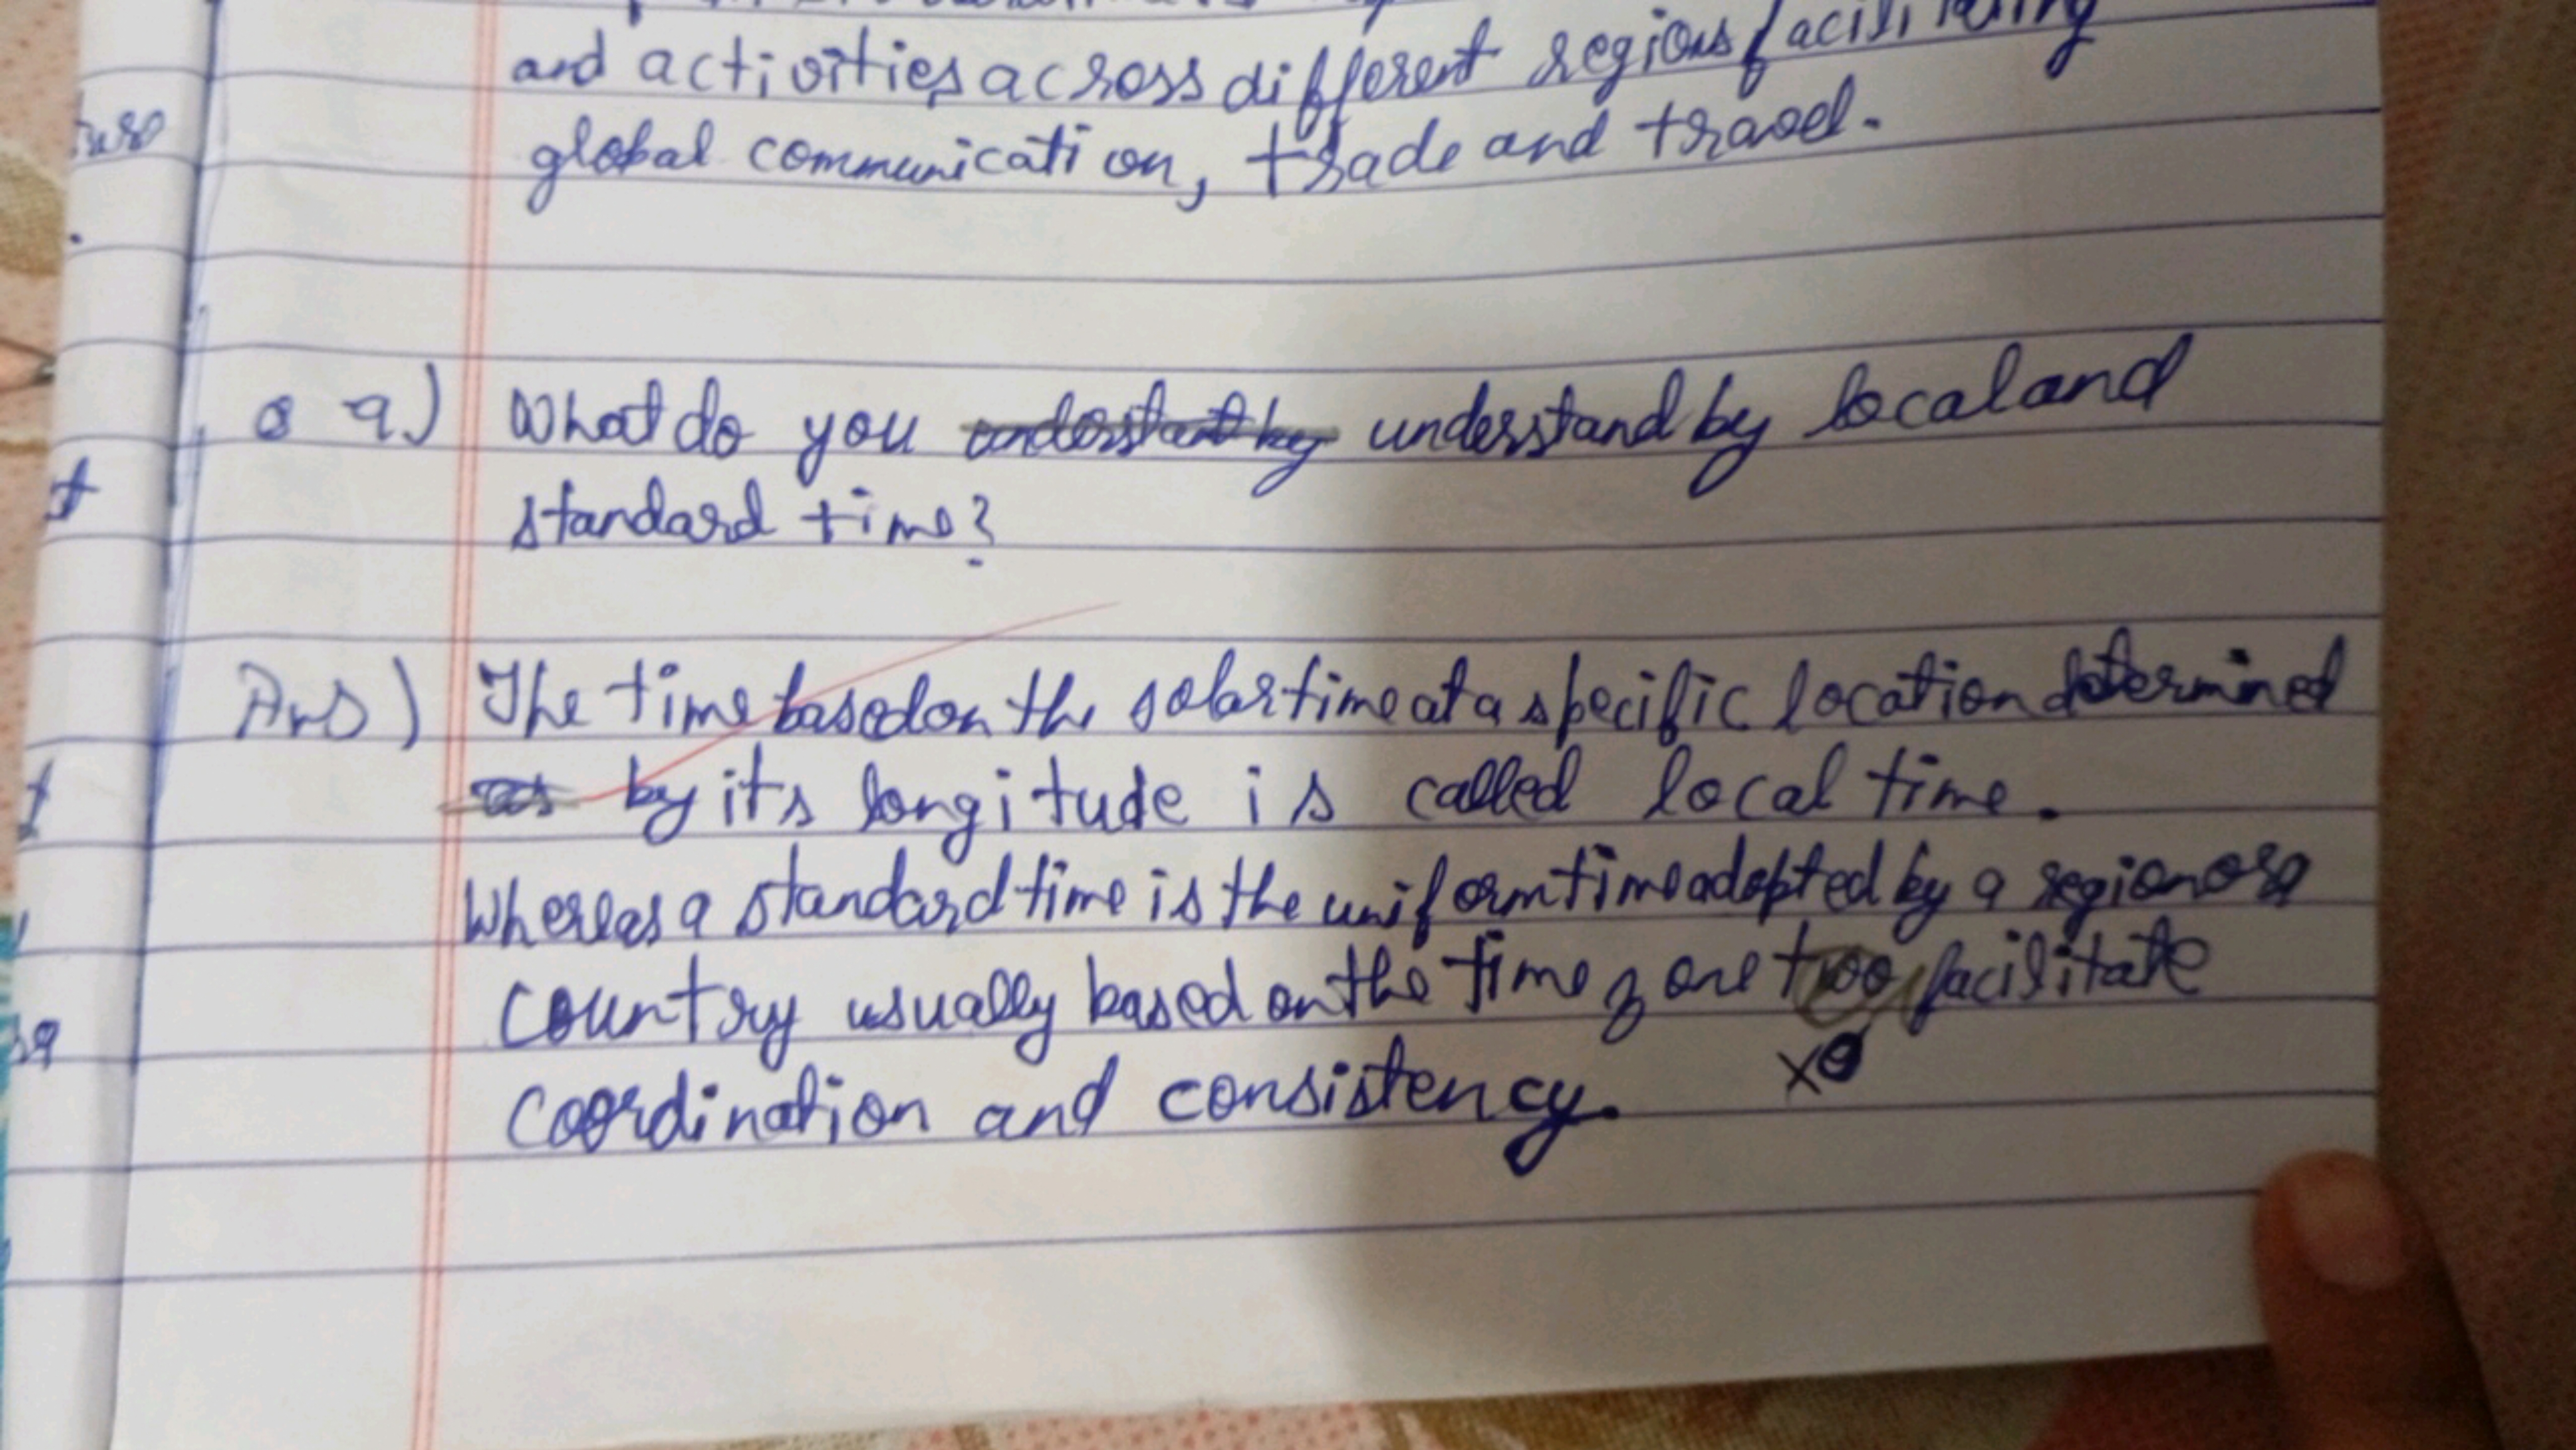 and activities across different regions facilitating
global communication, trade and travel.
9) What do you understand by local and
standard time?
Ans) The time based on the solar time at a specific location determined
by its longitude is called local time.
Whereas a standard time is the uniform time adopted by a region or a
country usually based on the time zone too facilitate
coordination and consistency.